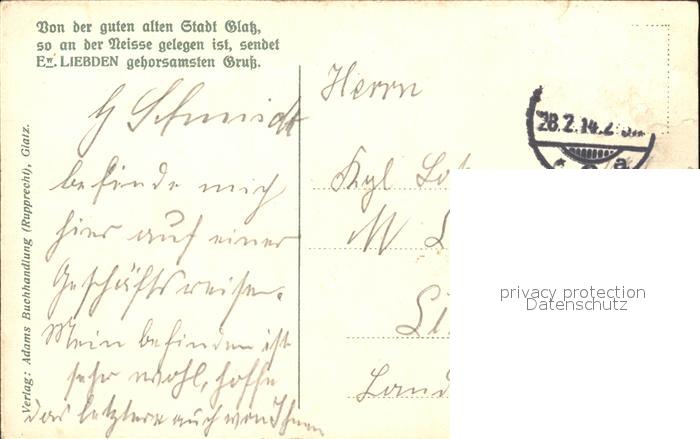 Von der guten alten Stadt Glatz,
so an der Neisse gelegen ist, sendet
Ew. LIEBDEN gehorsamsten Gruß.
Schmidt
befinde mich
hier auf einer
Geschäftsreise.
Mein befinden ist
sehr wohl, hoffe
das letztere auch von Ihnen
Verlag: Adams Buchhandlung (Rupprecht), Glatz.
Herrn
28.2.14.2
Kgl
M
Land
privacy protection
Datenschutz